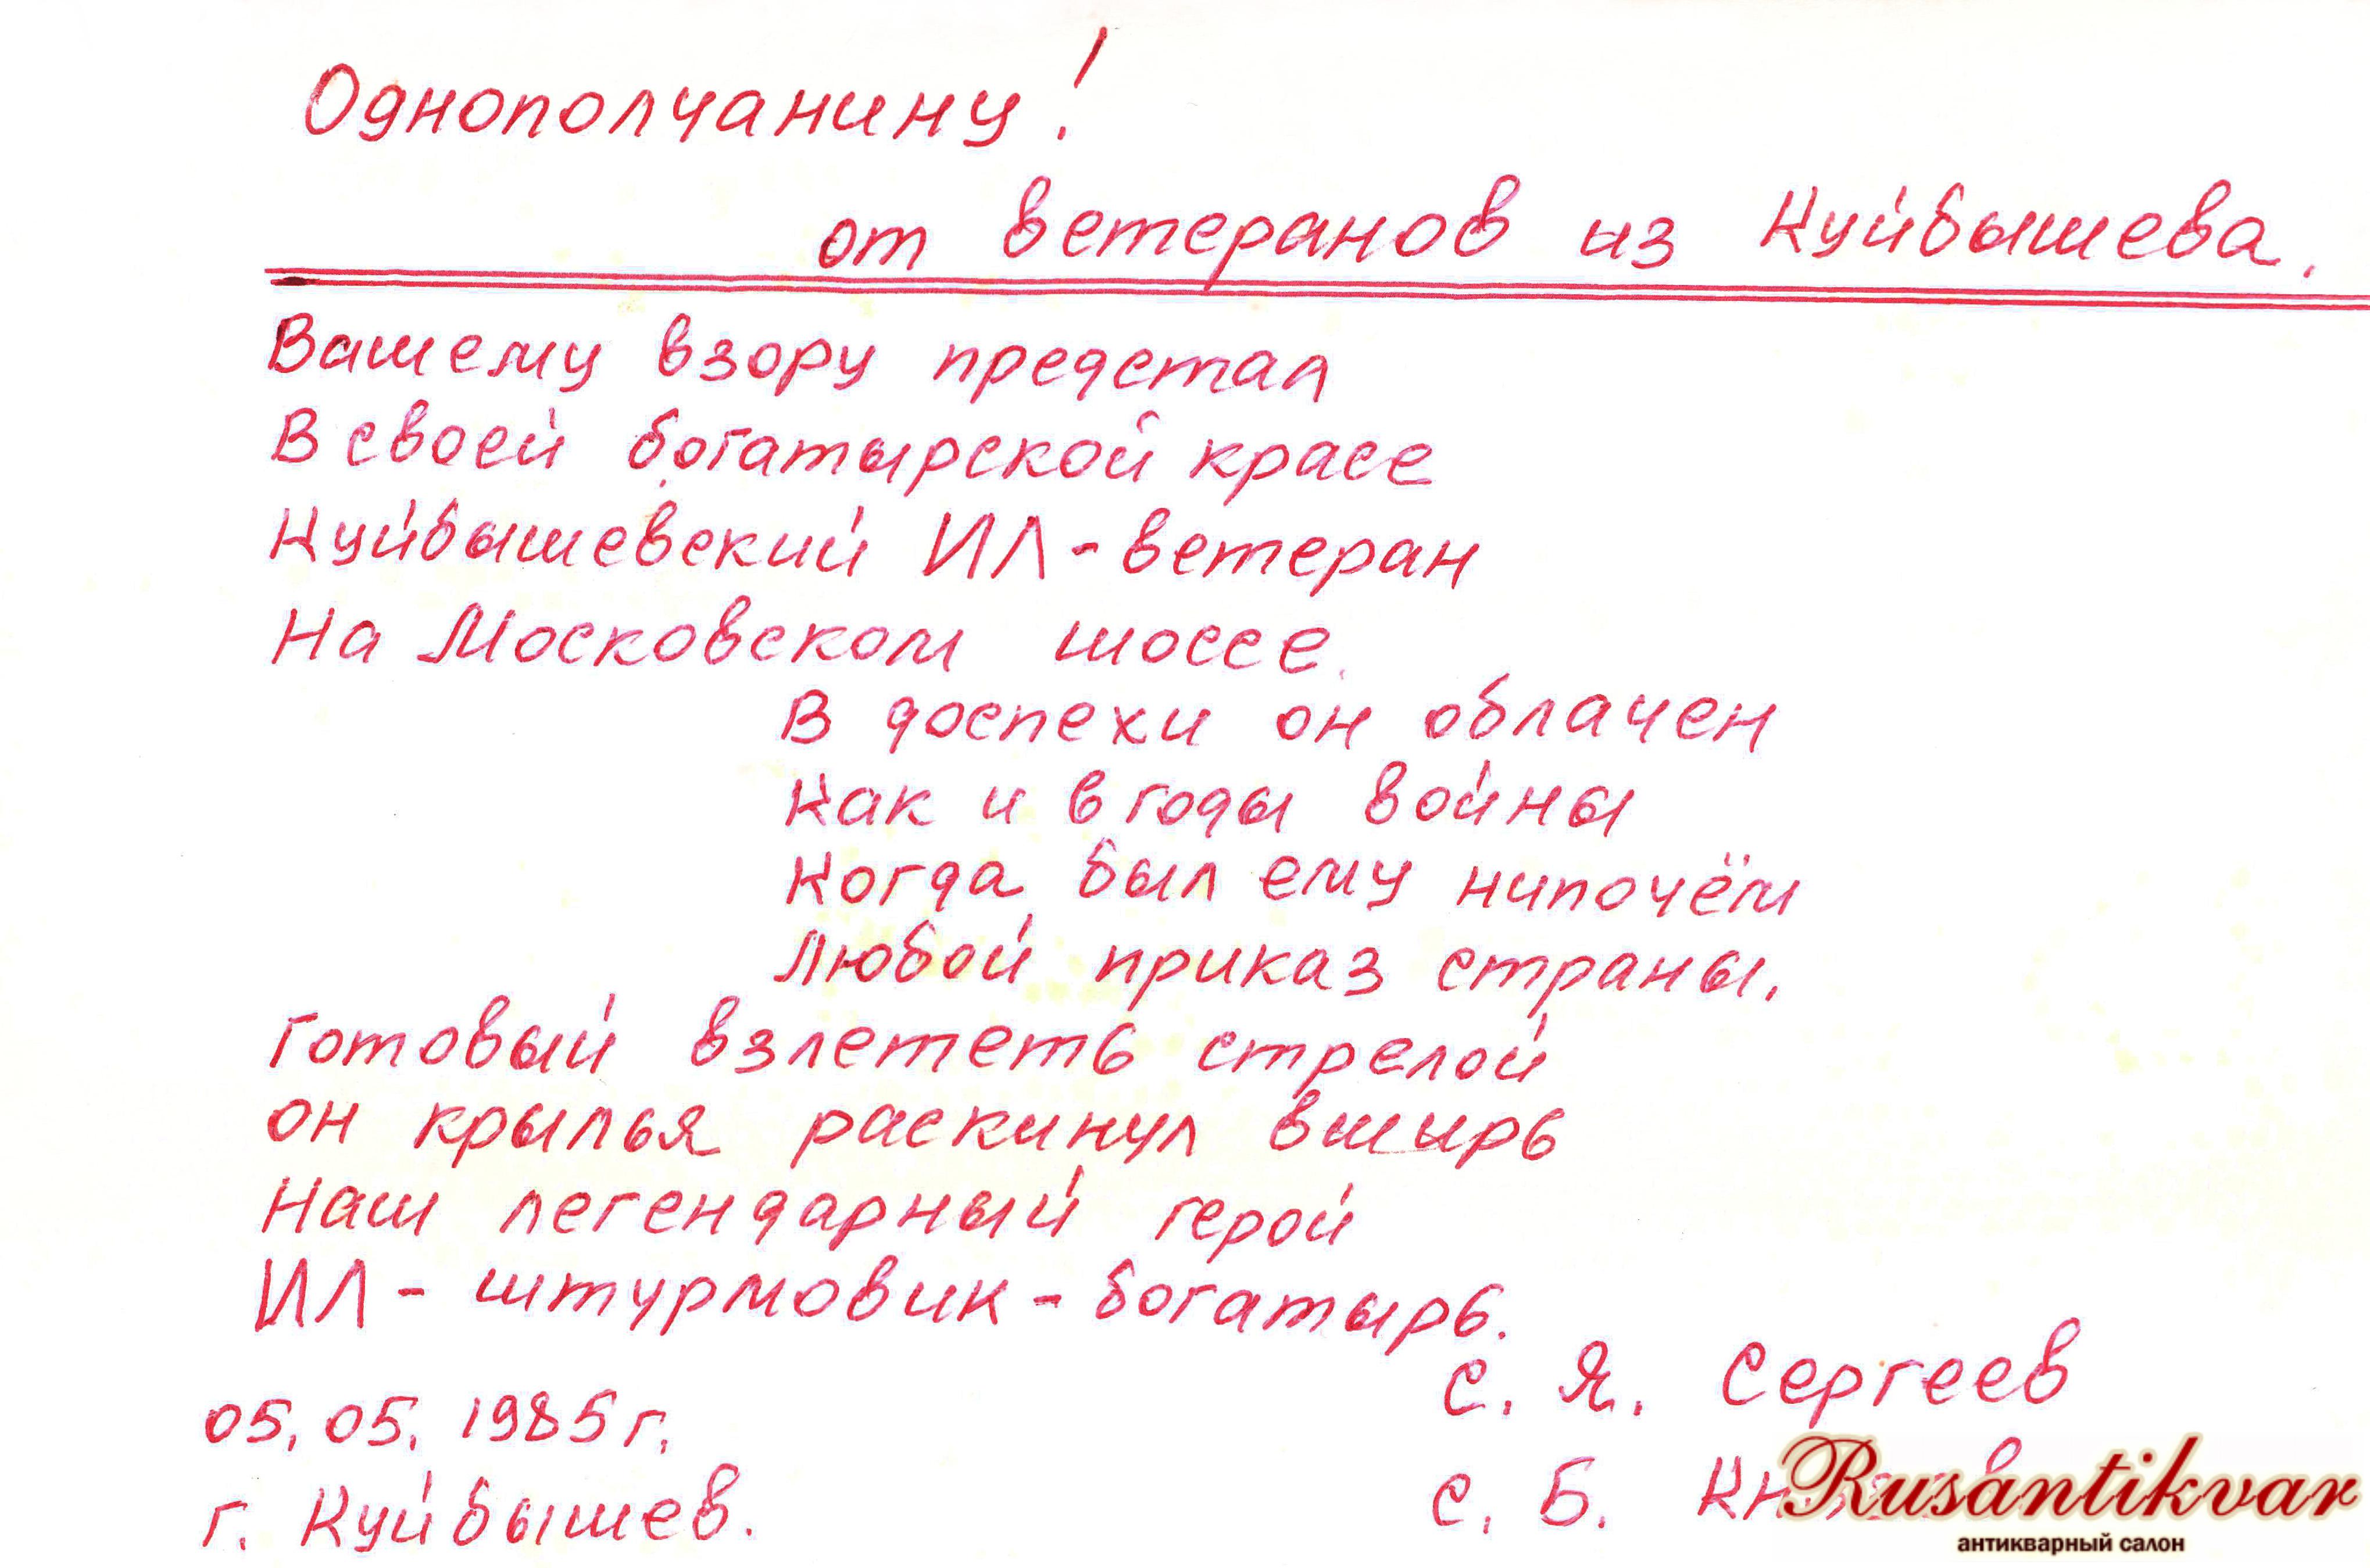 Однополчанину!
от ветеранов из Куйбышева.
Вашему взору предстал
В своей богатырской красе
Куйбышевский ИЛ-ветеран
На Московском шоссе.
В доспехи он облачен
Как и в годы войны
Когда был ему нипочём
Любой приказ страны.
Готовый взлететь стрелой
он крылья раскинул вширь
Наш легендарный герой
ИЛ - штурмовик - богатырь.
С. Я. Сергеев
05.05.1985 г.
С. Б.
г. Куйбышев.
Rusantikvar
антикварный салон